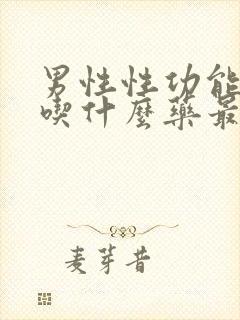 男性性功能
喫什麼藥最
麦芽昔